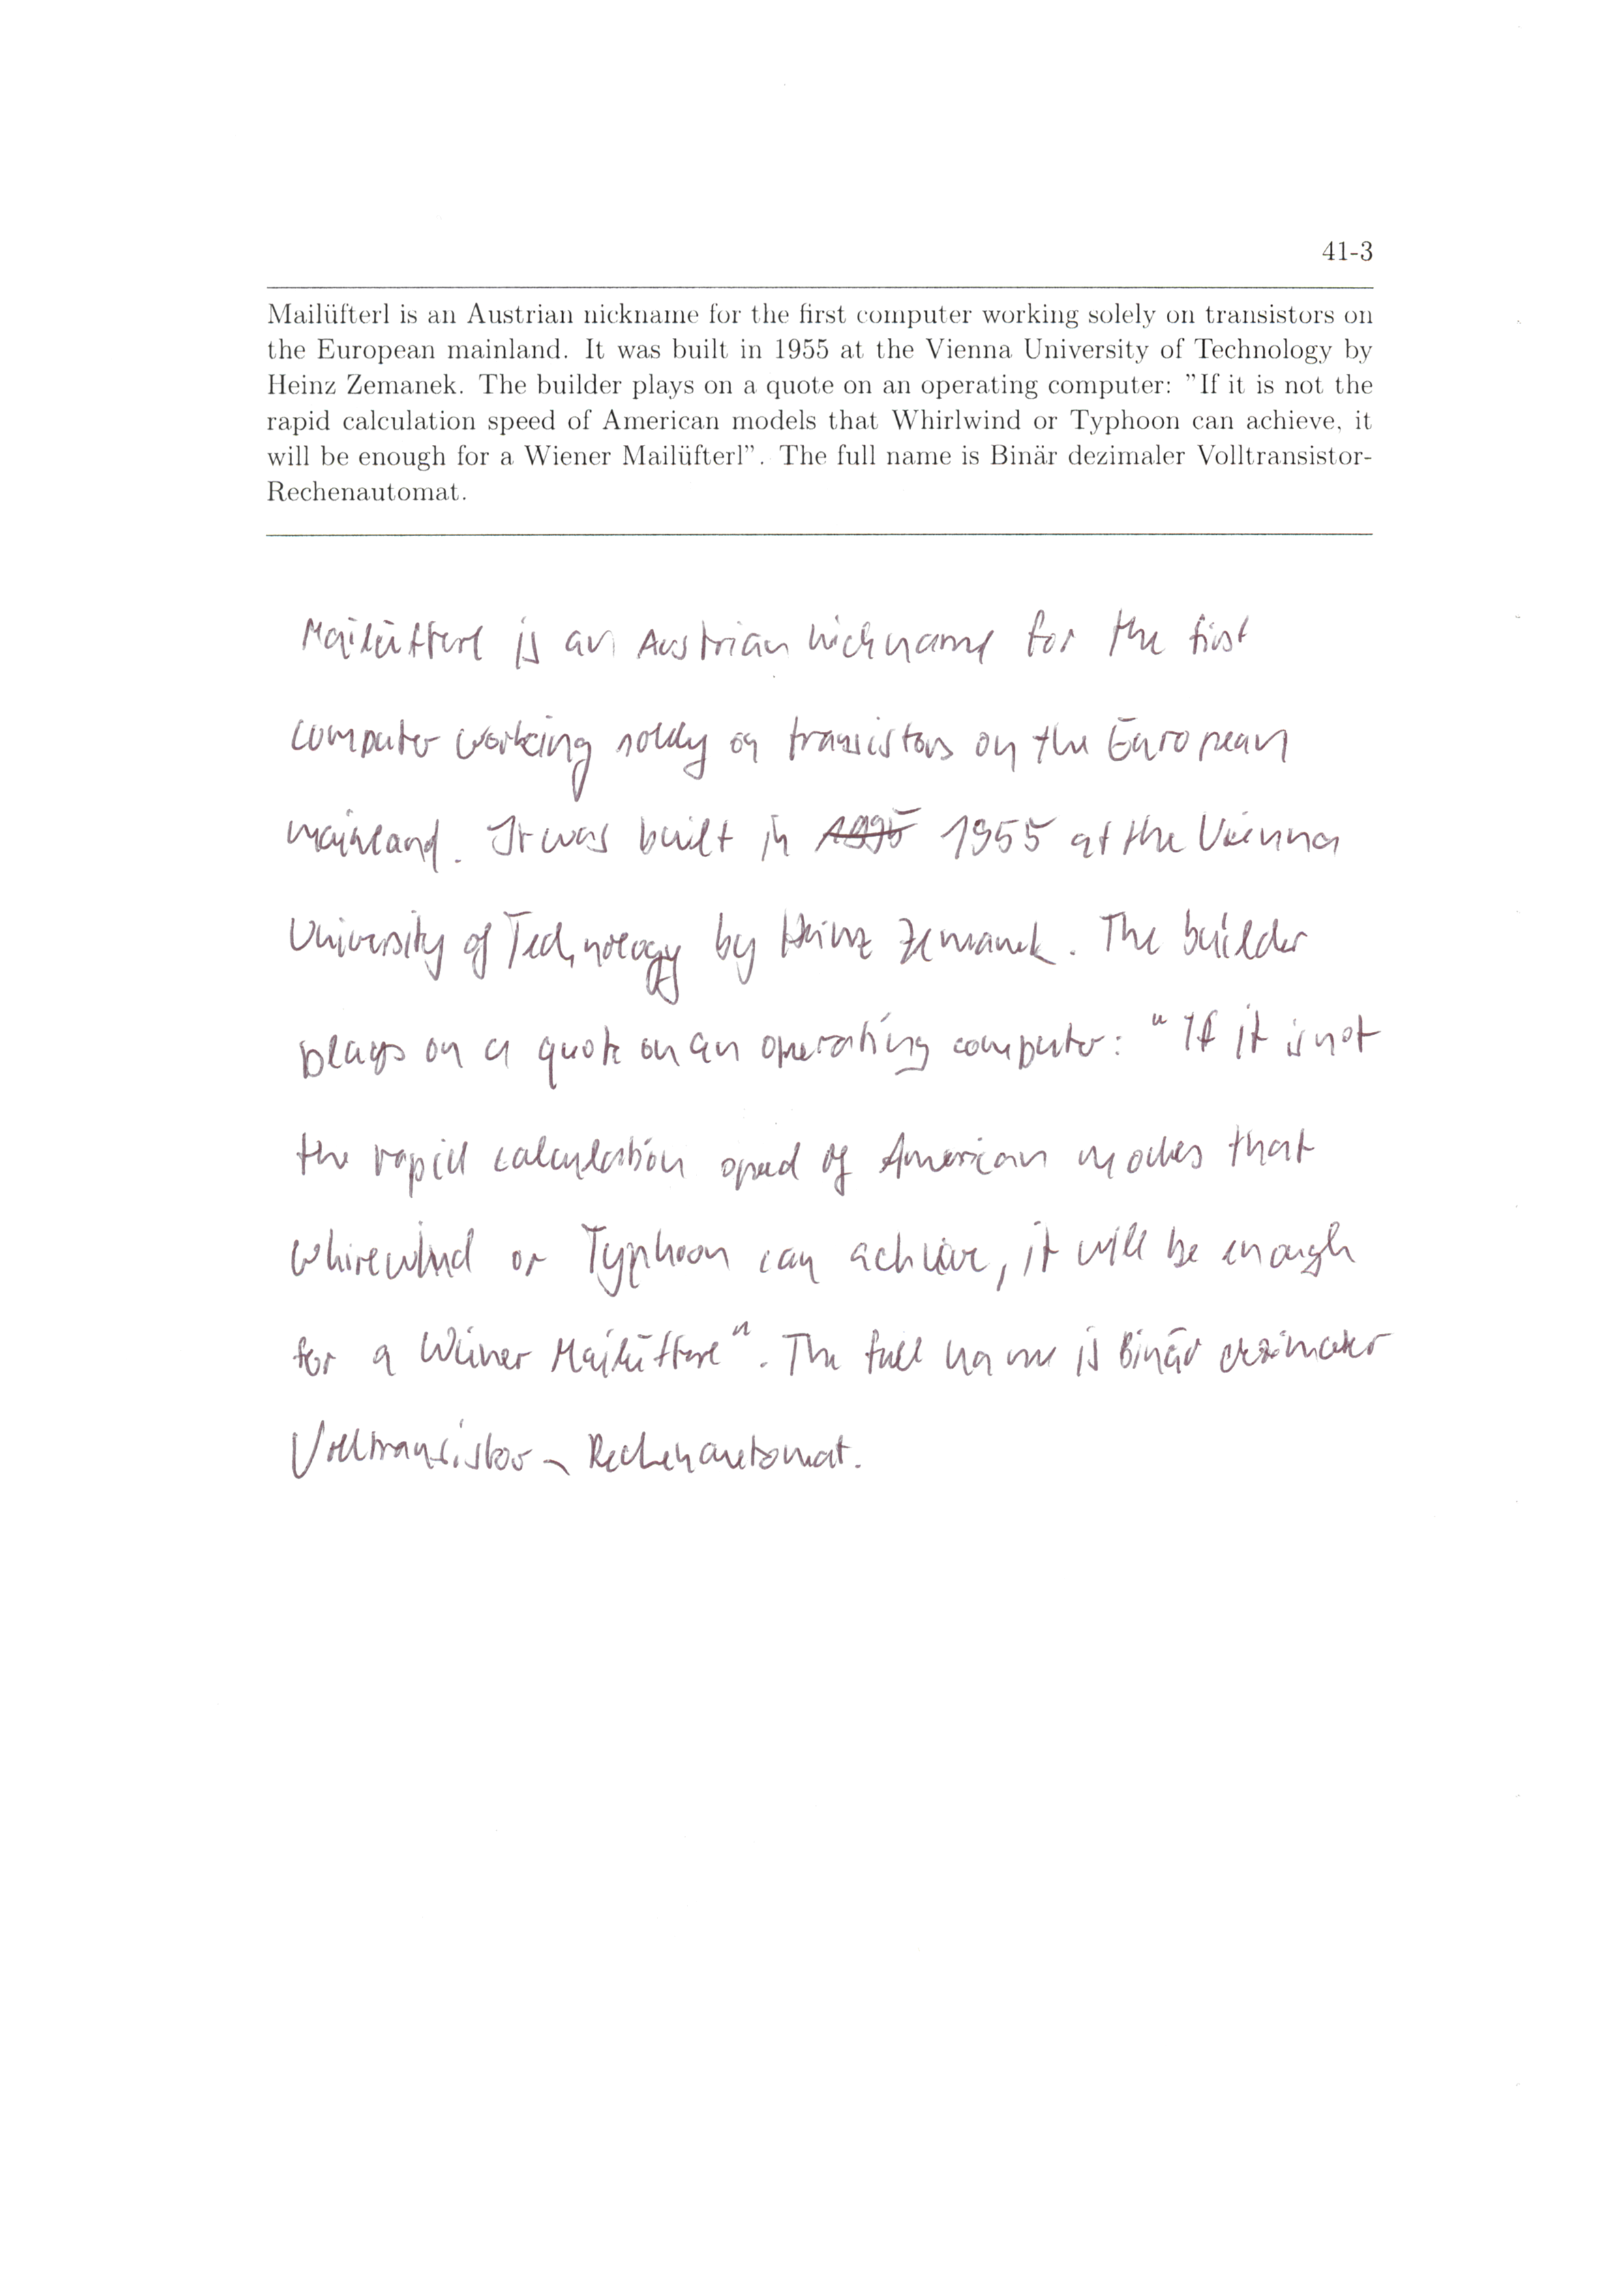 41-3
Mailüfterl is an Austrian nickname for the first computer working solely on transistors on
the European mainland. It was built in 1955 at the Vienna University of Technology by
Heinz Zemanek. The builder plays on a quote on an operating computer: "If it is not the
rapid calculation speed of American models that Whirlwind or Typhoon can achieve, it
will be enough for a Wiener Mailüfterl". The full name is Binär dezimaler Volltransistor-
Rechenautomat.
Mailüfterl is an Austrian nickname for the first
computer working solely on transistors on the European
mainland. It was built in 1955 at the Vienna
University of Technology by Heinz Zemanek. The builder
plays on a quote on an operating computer: "If it is not
the rapid calculation speed of American models that
Whirlwind or Typhoon can achieve, it will be enough
for a Wiener Mailüfterl". The full name is Binär dezimaler
Volltransistor-Rechenautomat.